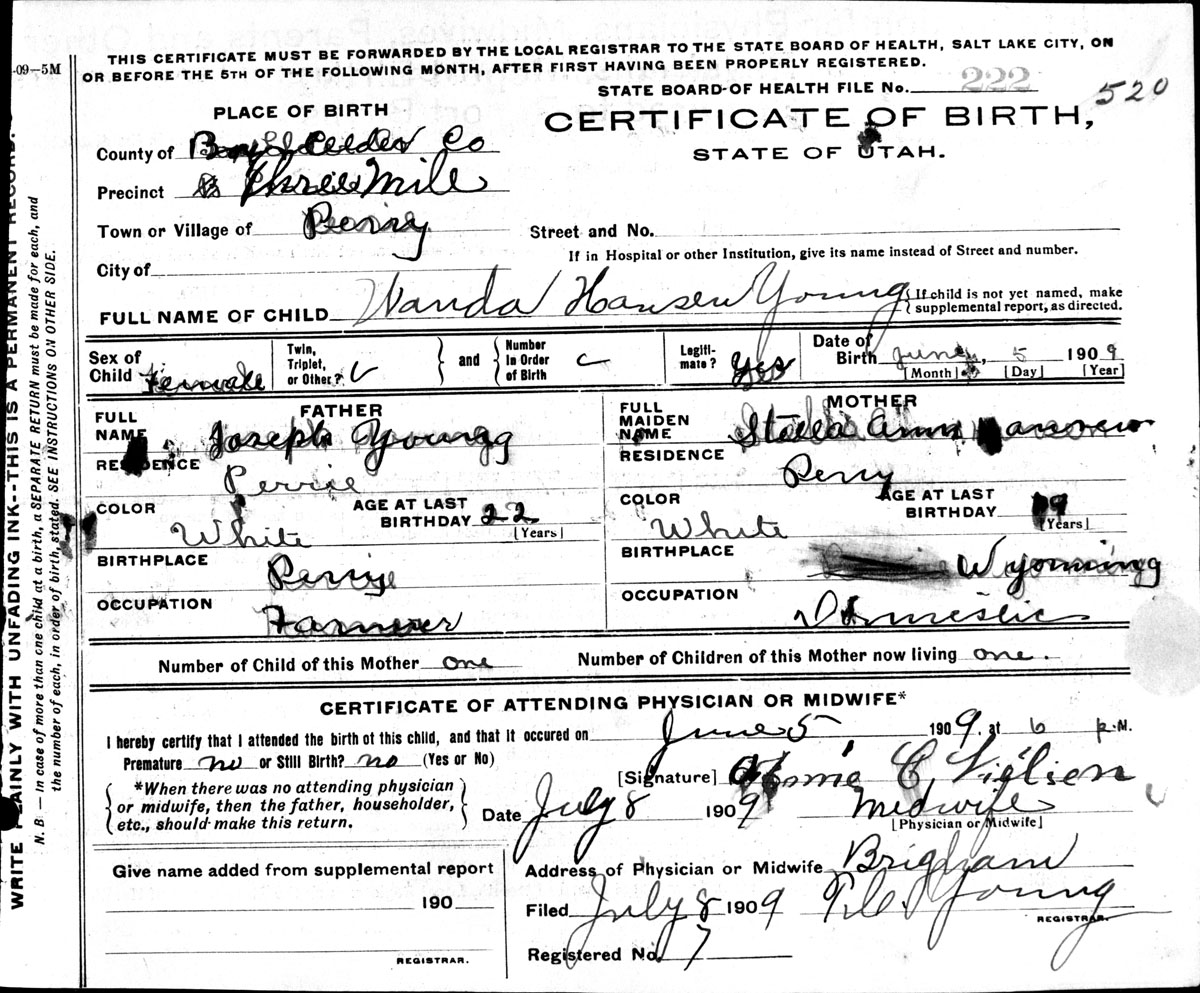 THIS CERTIFICATE MUST BE FORWARDED BY THE LOCAL REGISTRAR TO THE STATE BOARD OF HEALTH, SALT LAKE CITY, ON
OR BEFORE THE 5TH OF THE FOLLOWING MONTH, AFTER FIRST HAVING BEEN PROPERLY REGISTERED.
-09-5M
STATE BOARD OF HEALTH FILE No. 222
520
PLACE OF BIRTH
CERTIFICATE OF BIRTH,
STATE OF UTAH.
County of Box Elder Co
Precinct Three Mile
Town or Village of Perry
Street and No.
If in Hospital or other Institution, give its name instead of Street and number.
City of
FULL NAME OF CHILD Wanda Hansen Young { If child is not yet named, make supplemental report, as directed.
Sex of Child Female
Twin, Triplet, or Other?
} and {
Number in Order of Birth
Legiti-mate? Yes
Date of Birth June, 5 1909
[Month] [Day] [Year]
FATHER
FULL NAME Joseph Young
RESIDENCE Perrie
COLOR White
AGE AT LAST BIRTHDAY 22
[Years]
BIRTHPLACE Perry
OCCUPATION Farmer
MOTHER
FULL MAIDEN NAME Stella Ann Hansen
RESIDENCE Perry
COLOR White
AGE AT LAST BIRTHDAY 19
[Years]
BIRTHPLACE Wyoming
OCCUPATION Domestic
Number of Child of this Mother one
Number of Children of this Mother now living one.
CERTIFICATE OF ATTENDING PHYSICIAN OR MIDWIFE*
I hereby certify that I attended the birth of this child, and that it occured on June 5 1909. at 6 P.M.
Premature no or Still Birth? no (Yes or No)
[Signature] C. Nielsen
{ *When there was no attending physician
or midwife, then the father, householder,
etc., should make this return. }
Date July 8 1909
Midwife
[Physician or Midwife]
Give name added from supplemental report
190
REGISTRAR.
Address of Physician or Midwife Brigham
Filed July 8 1909 Young
REGISTRAR.
Registered No. 7
WRITE PLAINLY WITH UNFADING INK--THIS IS A PERMANENT RECORD.
N. B.— In case of more than one child at a birth, a SEPARATE RETURN must be made for each, and
the number of each, in order of birth, stated. SEE INSTRUCTIONS ON OTHER SIDE.